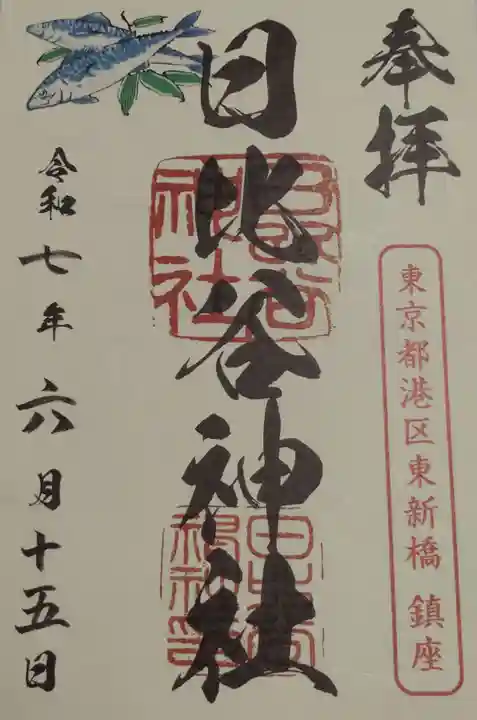 奉拝
東京都港区東新橋 鎮座
日比谷神社
日比谷神社
令和七年六月十五日